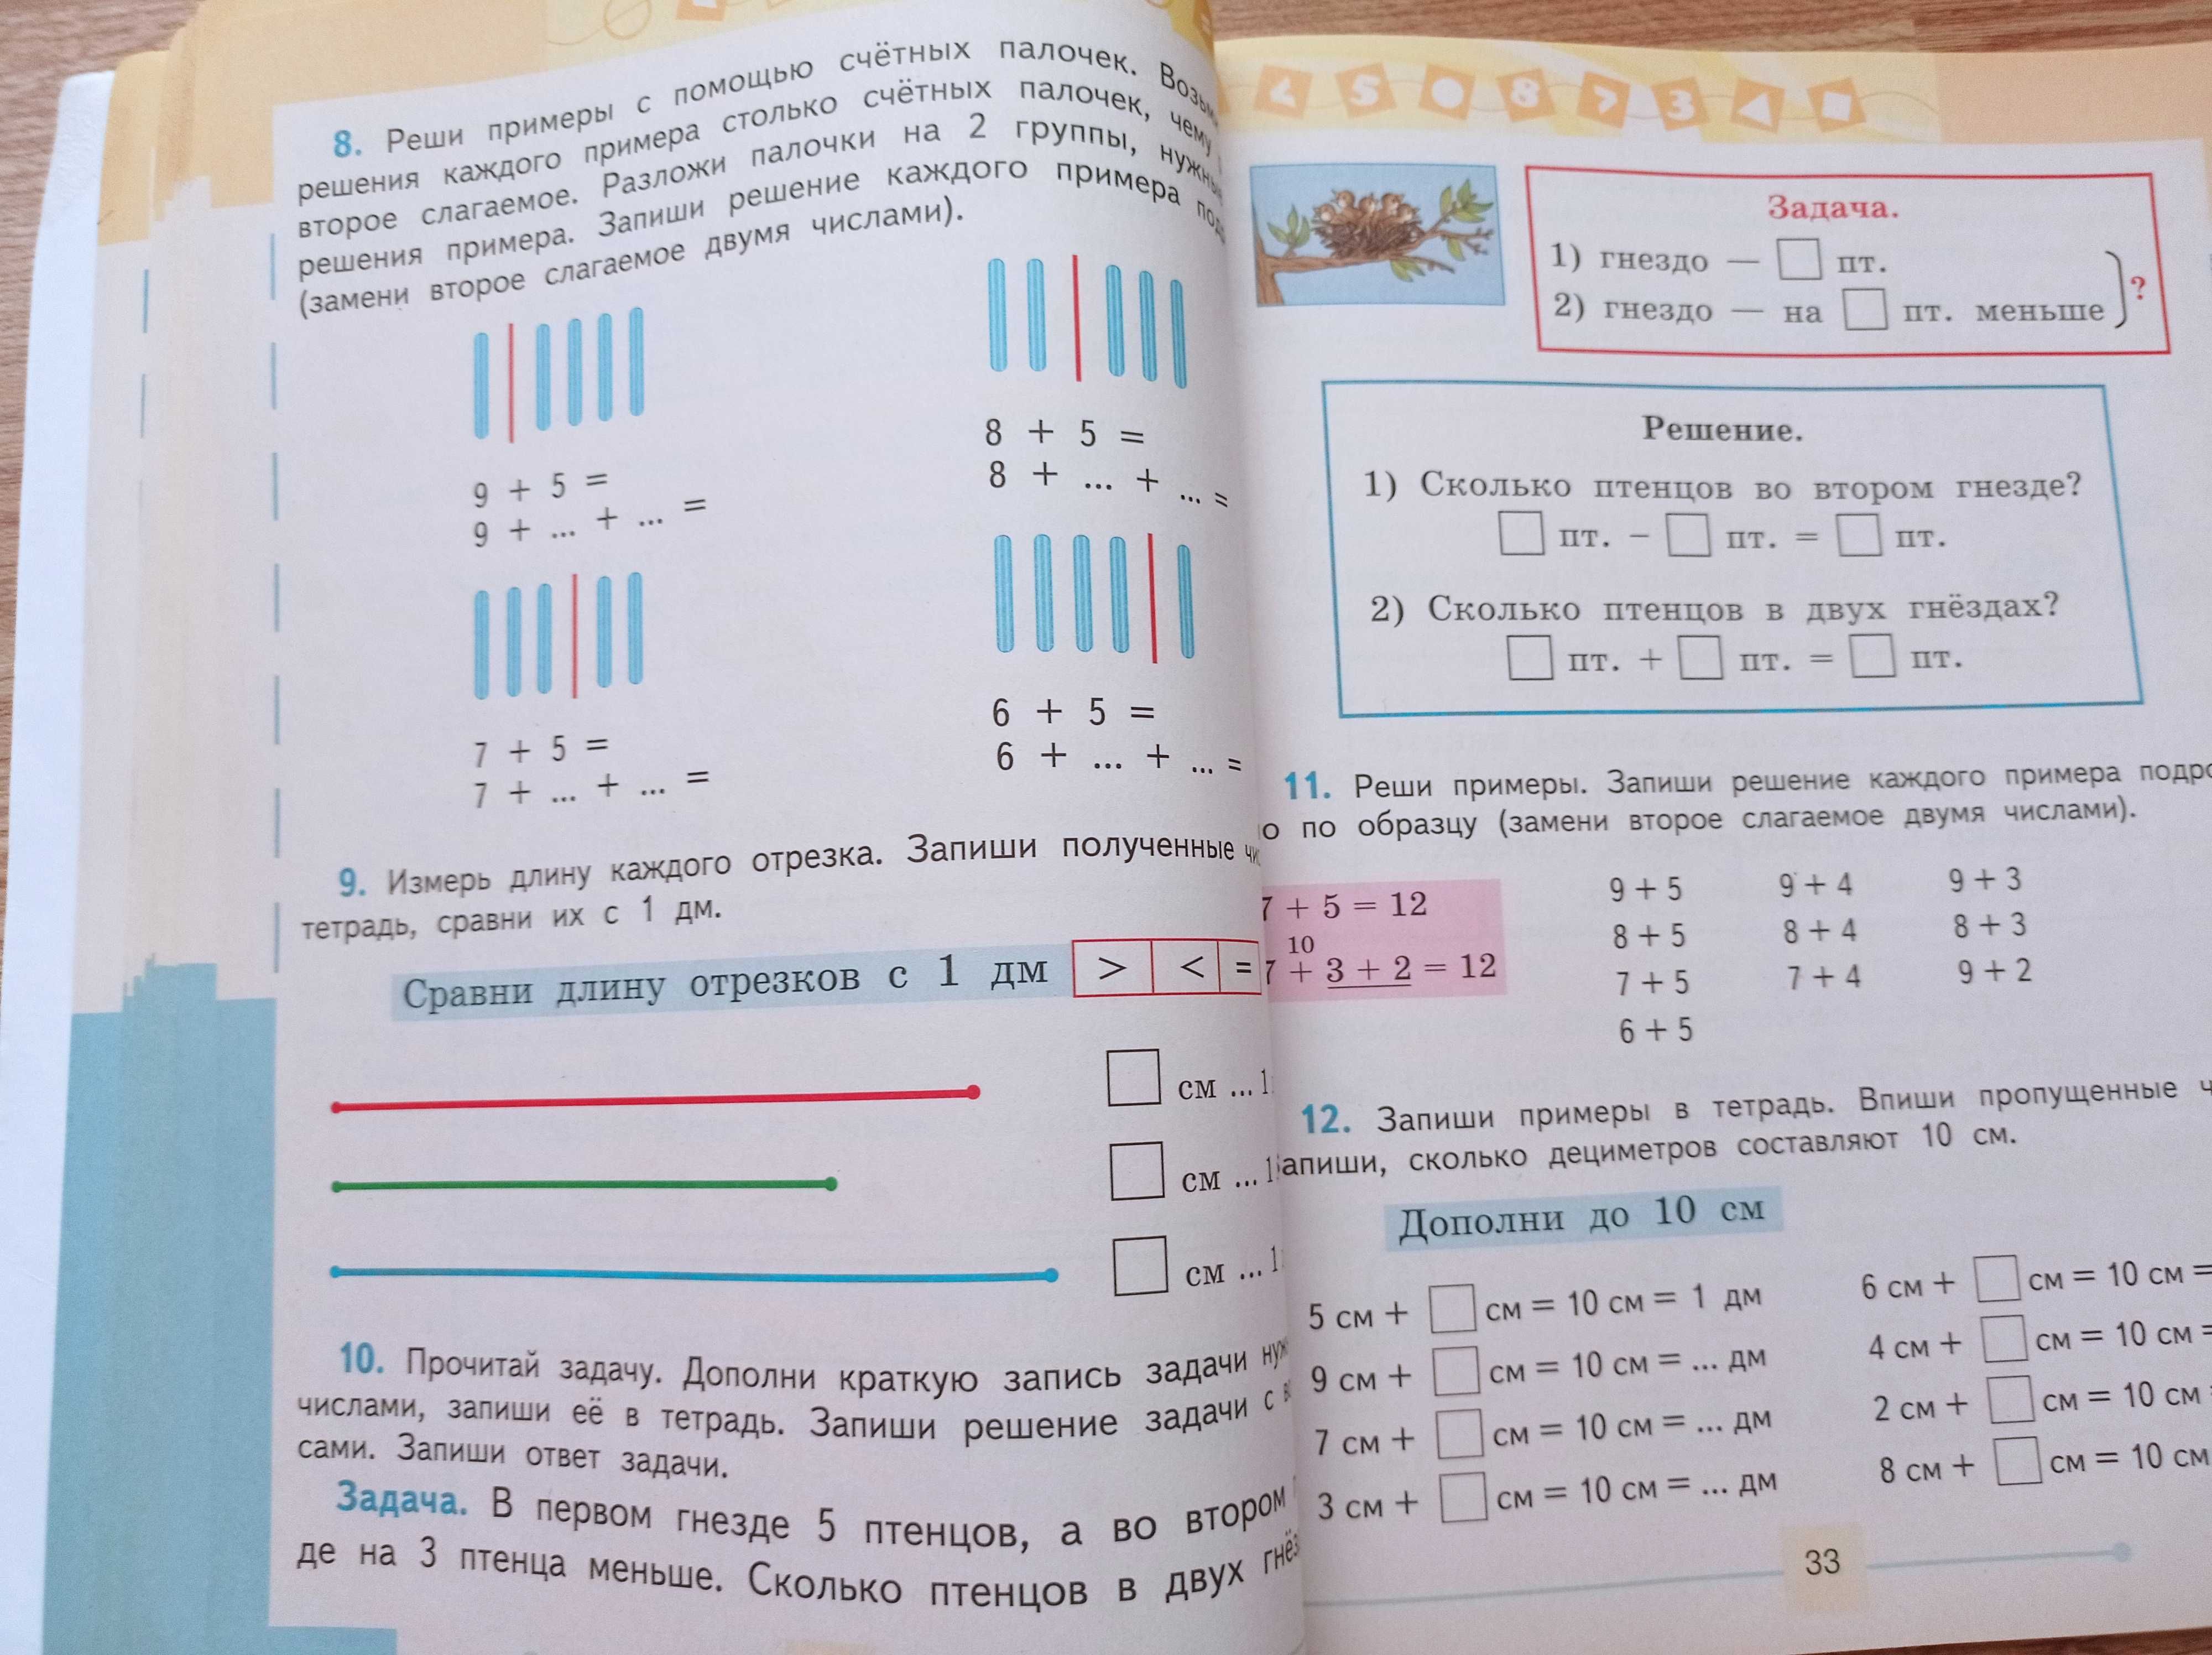 8. Реши примеры с помощью счётных палочек.
решения каждого примера столько счётных палочек, чему
второе слагаемое. Разложи палочки на 2 группы,
решения примера. Запиши решение каждого примера
(замени второе слагаемое двумя числами).
9 + 5 =
9 + ... + ... =
8 + 5 =
8 + ... + ... =
7 + 5 =
7 + ... + ... =
6 + 5 =
6 + ... + ... =
9. Измерь длину каждого отрезка. Запиши полученные
тетрадь, сравни их с 1 дм.
Сравни длину отрезков с 1 дм > < =
см ... 1
см ... 1
см ... 1
10. Прочитай задачу. Дополни краткую запись задачи
числами, запиши её в тетрадь. Запиши решение задачи с
сами. Запиши ответ задачи.
Задача. В первом гнезде 5 птенцов, а во втором
де на 3 птенца меньше. Сколько птенцов в двух
< 5 8 > 3
Задача.
1) гнездо — пт.
2) гнездо — на пт. меньше
?
Решение.
1) Сколько птенцов во втором гнезде?
пт. − пт. = пт.
2) Сколько птенцов в двух гнёздах?
пт. + пт. = пт.
11. Реши примеры. Запиши решение каждого примера
о по образцу (замени второе слагаемое двумя числами).
7 + 5 = 12
10
7 + 3 + 2 = 12
9 + 5 9 + 4 9 + 3
8 + 5 8 + 4 8 + 3
7 + 5 7 + 4 9 + 2
6 + 5
12. Запиши примеры в тетрадь. Впиши пропущенные
апиши, сколько дециметров составляют 10 см.
Дополни до 10 см
5 см + см = 10 см = 1 дм
9 см + см = 10 см = ... дм
7 см + см = 10 см = ... дм
3 см + см = 10 см = ... дм
6 см + см = 10 см =
4 см + см = 10 см =
2 см + см = 10 см
8 см + см = 10 см
33